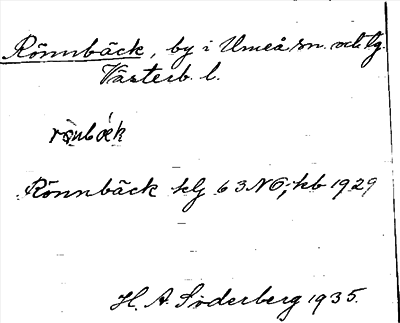 Rönnbäck, by i Umeå sn. och tg.
Västerb. l.
rönbæk
Rönnbäck klj 63 NO; kb 1929
H. A. Söderberg 1935.